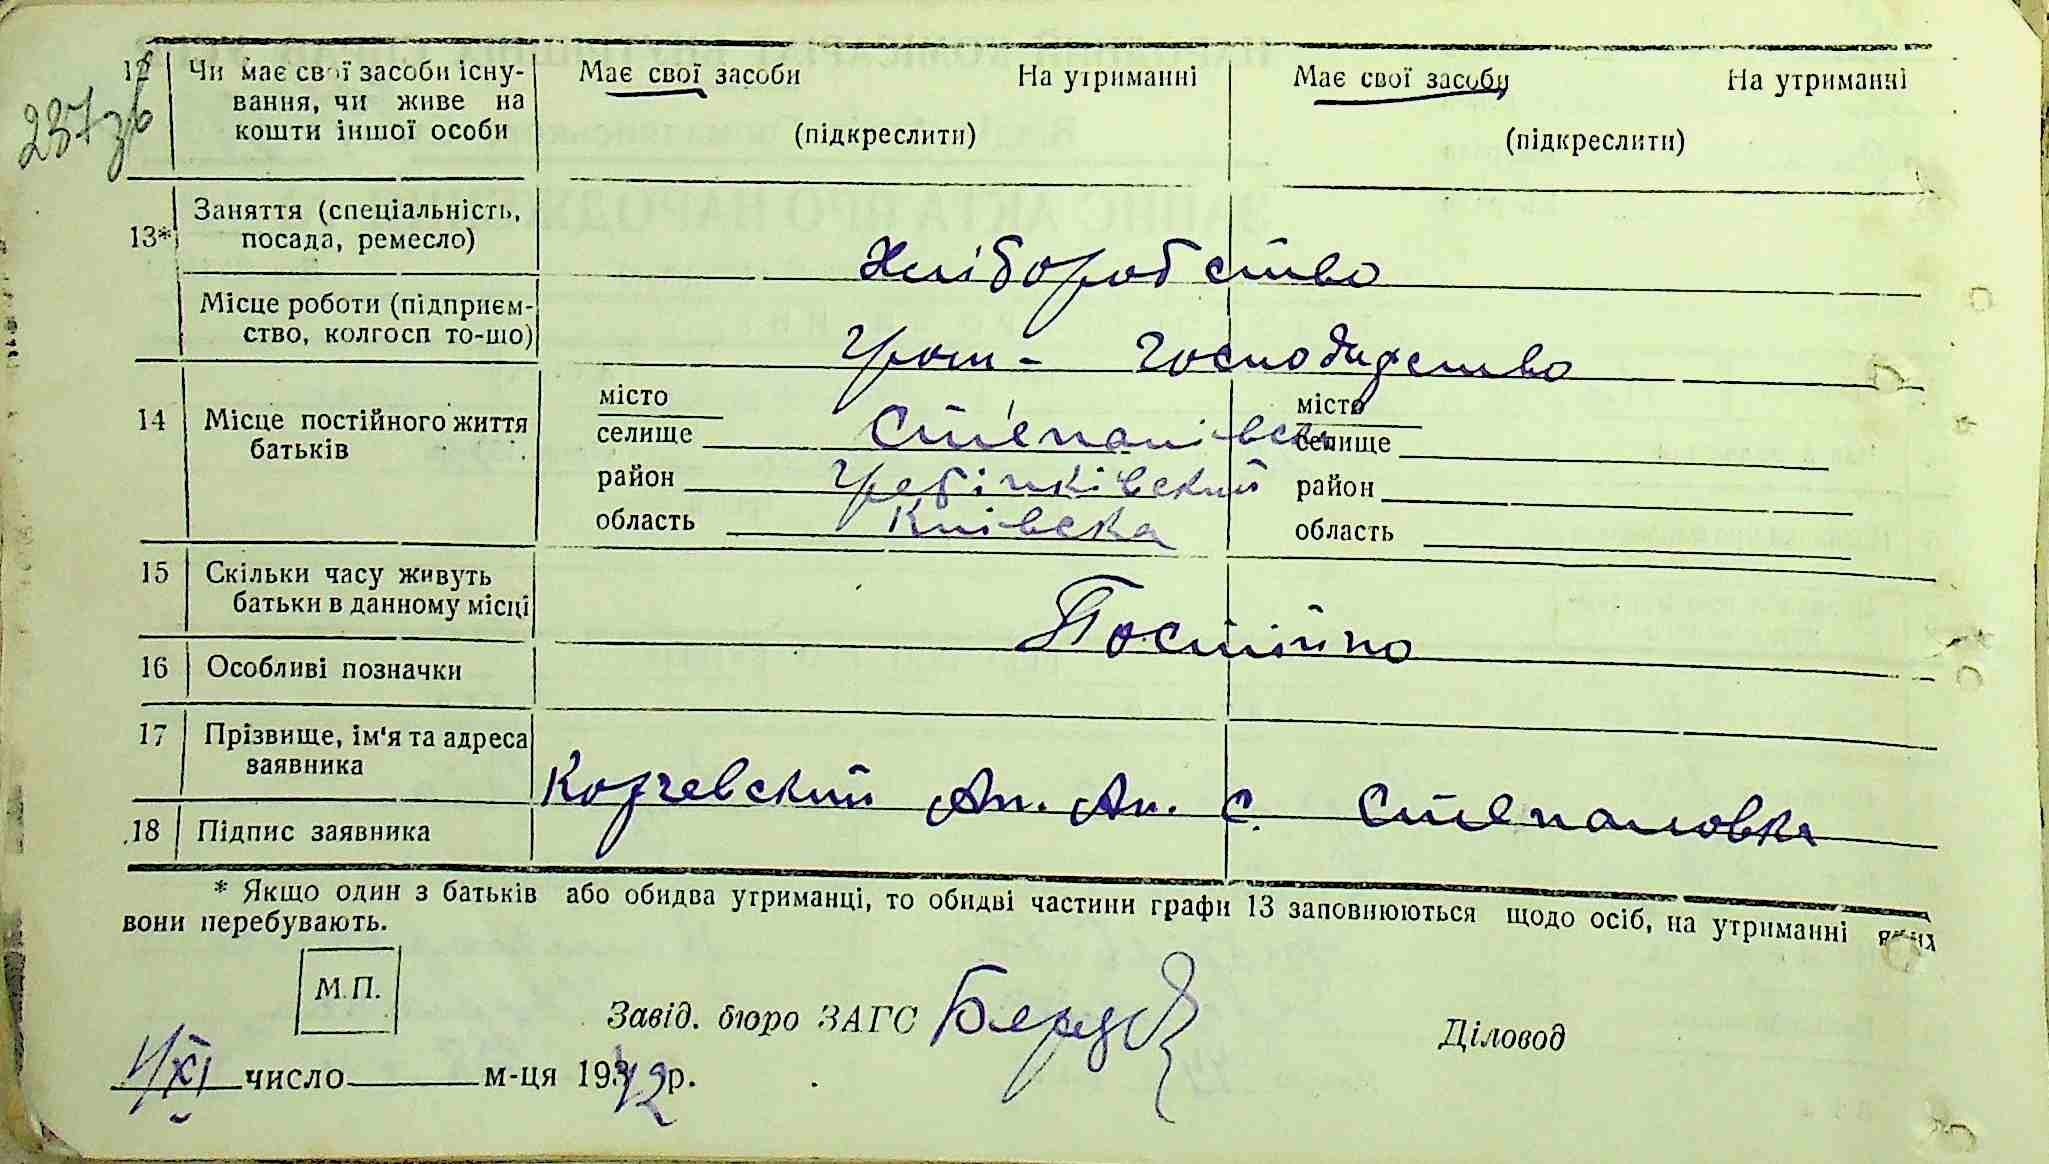 237зв
12 Чи має свої засоби існу-
вання, чи живе на
кошти іншої особи
Має свої засоби На утриманні
(підкреслити)
Має свої засоби На утриманні
(підкреслити)
13* Заняття (спеціальність,
посада, ремесло)
Хліборобство
Місце роботи (підприєм-
ство, колгосп то-що)
Гром- господарство
14 Місце постійного життя
батьків
місто
селище Степанівська
район Гребінківский
область Київска
місто
селище
район
область
15 Скільки часу живуть
батьки в данному місці
Постійно
16 Особливі позначки
17 Прізвище, ім'я та адреса
заявника
Корчевский Ан. Ан. с. Степановка
18 Підпис заявника
* Якщо один з батьків або обидва утриманці, то обидві частини графи 13 заповнюються щодо осіб, на утриманні яких
вони перебувають.
М.П.
Завід. бюро ЗАГС
Діловод
1/XI число м-ця 1942 р.